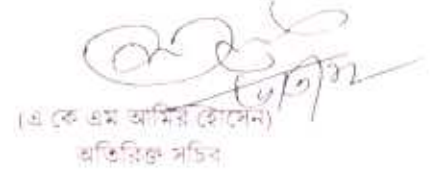 (এ কে এম আমির হোসেন)
অতিরিক্ত সচিব